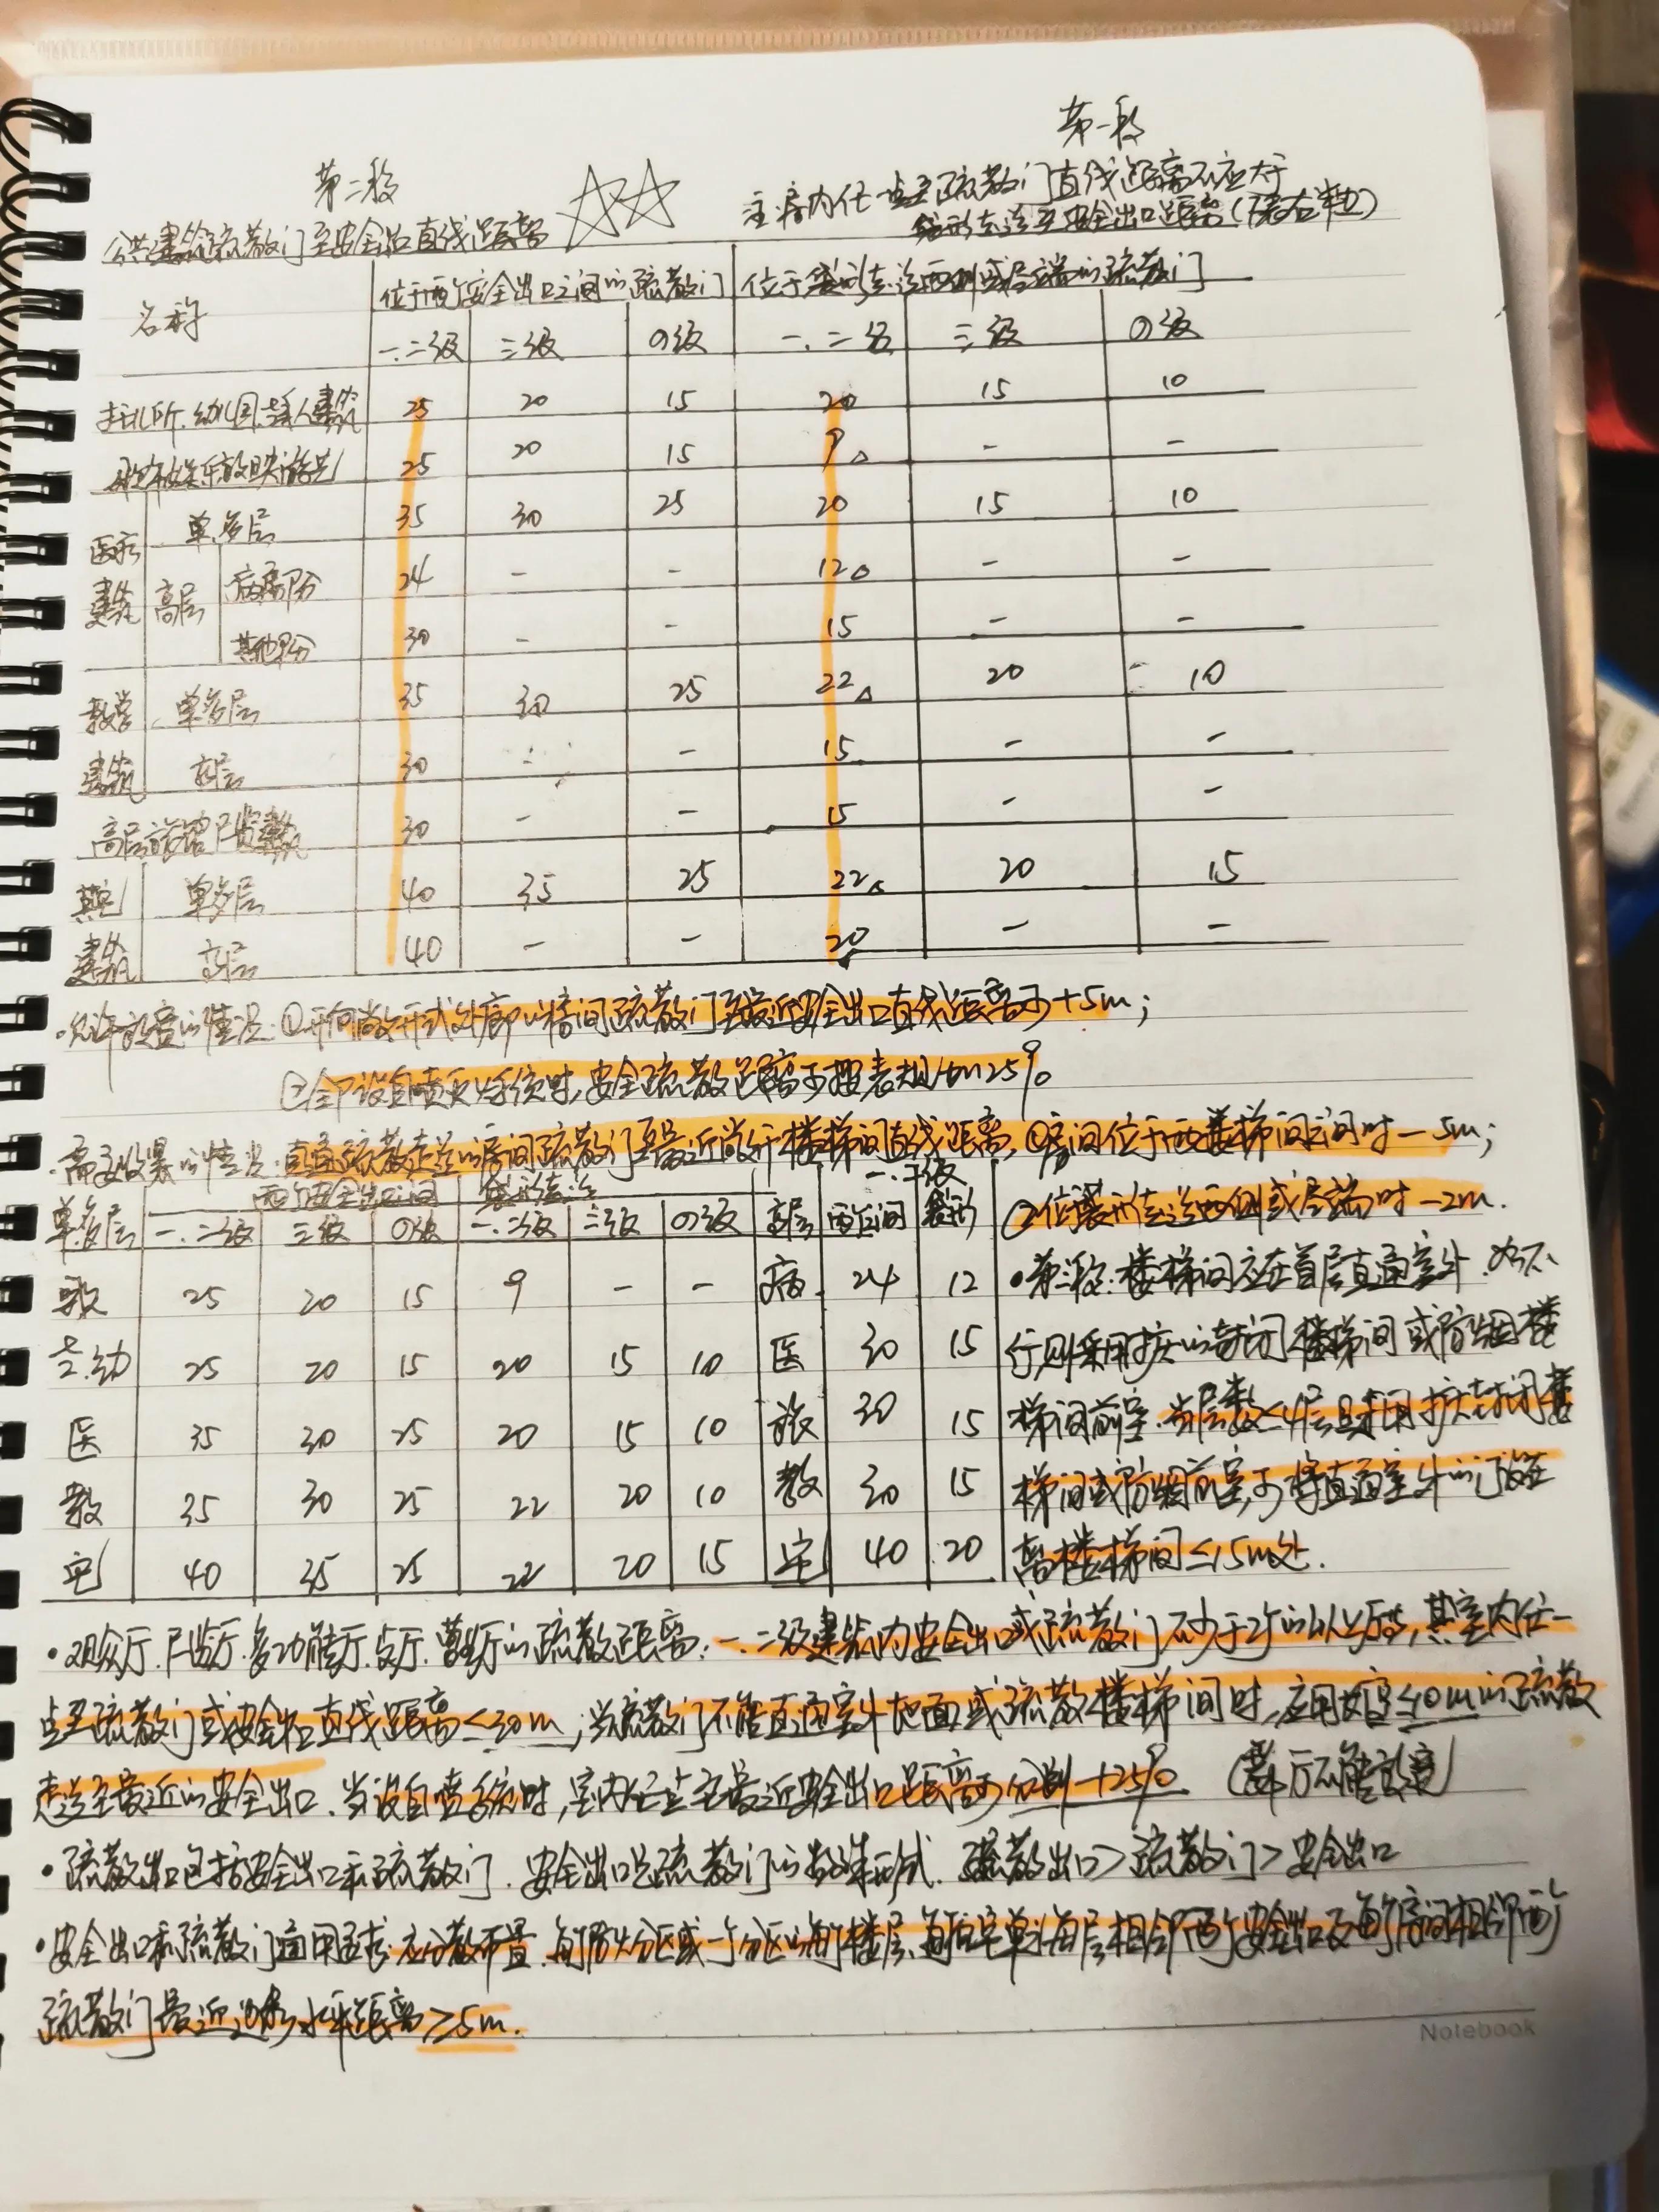 第一段
第二段
主: 房内任一点至疏散门直线距离不应大于
袋形走道至安全出口距离(表右半边)
公共建筑疏散门至安全出口直线距离
名称 位于两个安全出口之间的疏散门 位于袋形走道两侧或尽端的疏散门
一.二级 三级 四级 一.二级 三级 四级
托儿所.幼儿园.老年人建筑 25 20 15 20 15 10
歌舞娱乐放映游艺 25 20 15 9△ - -
医疗建筑 单.多层 35 30 25 20 15 10
高层 病房部分 24 - - 12△ - -
其他部分 30 - - 15 - -
教学建筑 单多层 35 30 25 22△ 20 10
高层 30 - 15 - -
高层旅馆展览建筑 30 - - 15 - -
其它建筑 单多层 40 35 25 22△ 20 15
高层 40 - - 20 - -
·允许放宽的情况:①开向敞开式外廊的房间疏散门至最近安全出口直线距离可+5m;
②全部设自喷灭火系统时,安全疏散距离可按表规加25%
·需要收紧的情况:直通疏散走道的房间疏散门至最近敞开楼梯间直线距离,①房间位于两楼梯间之间时-5m;
②位于袋形走道两侧或尽端时-2m.
两个安全出口之间 袋形走道 一.二级
单多层 一.二级 三级 四级 一.二级 三级 四级 高层 两之间 袋形
歌 25 20 15 9 - - 病 24 12
老.幼 25 20 15 20 15 10 医 30 15
医 35 30 25 20 15 10 旅 30 15
教 35 30 25 22 20 10 教 30 15
它 40 35 25 22 20 15 它 40 20
·第三段:楼梯间应在首层直通室外.如不
行则采用扩大的封闭楼梯间或防烟楼
梯间前室.当层数≤4层且未用扩大封闭楼
梯间或防烟前室,可将直通室外的门设在
离楼梯间≤15m处.
·观众厅.展览厅.多功能厅.餐厅.营业厅的疏散距离:一.二级建筑内安全出口或疏散门不少于2个的以上厅,其室内任一
点至疏散门或安全出口直线距离≤30m;当疏散门不能直通室外地面或疏散楼梯间时,应用长度≤10m的疏散
走道至最近的安全出口.当设自喷系统时,室内任一点至最近安全出口距离可分别+25%
·疏散出口包括安全出口和疏散门.安全出口是疏散门的特殊形式.疏散出口>疏散门>安全出口
·安全出口和疏散门通用要求:应分散布置.每个防火分区或一个分区的每个楼层、每住宅单元每层相邻两个安全出口及每个房间相邻两个
疏散门最近边缘水平距离≥5m.
Notebook